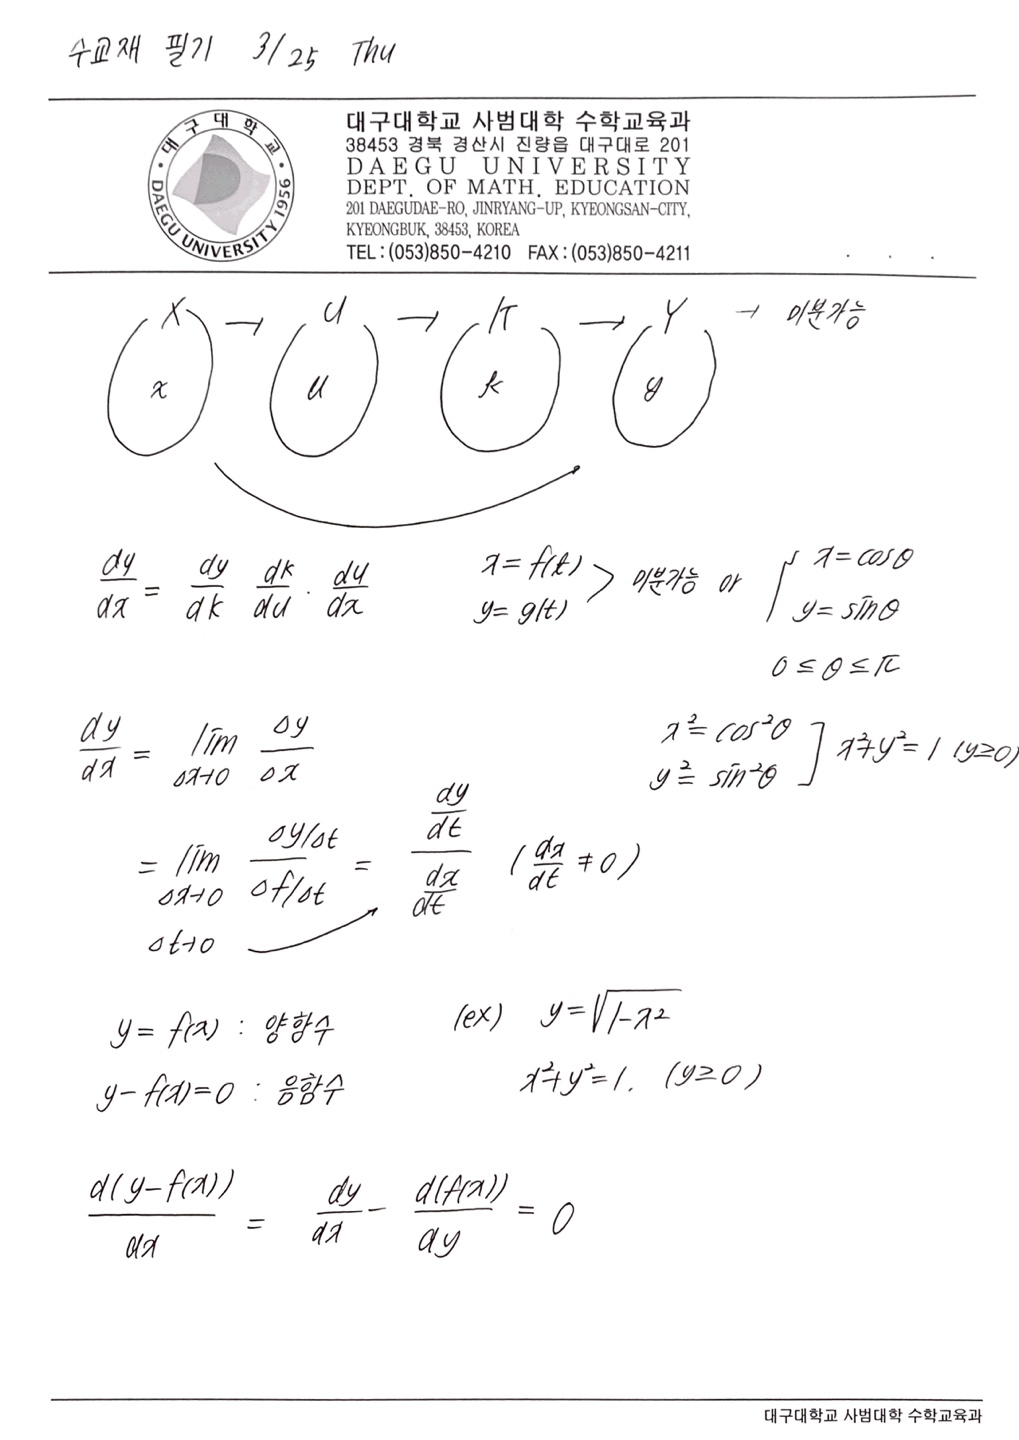 수교재 필기 3/25 Thu
대구대학교
DAEGU UNIVERSITY 1956
대구대학교 사범대학 수학교육과
38453 경북 경산시 진량읍 대구대로 201
DAEGU UNIVERSITY
DEPT. OF MATH. EDUCATION
201 DAEGUDAE-RO, JINRYANG-UP, KYEONGSAN-CITY,
KYEONGBUK, 38453, KOREA
TEL : (053)850-4210 FAX : (053)850-4211
X → U → K → Y → 미분가능
x u k y
dy/dx = dy/dk dk/du · du/dx
x = f(t)
y = g(t) > 미분가능 or { x = cosθ
y = sinθ
0 ≤ θ ≤ π
dy/dx = lim Δx→0 Δy/Δx
x² = cos²θ
y² = sin²θ ] x²+y²=1 (y≥0)
= lim Δx→0 Δt→0 (Δy/Δt)/(Δf/Δt) = (dy/dt)/(dx/dt) (dx/dt ≠ 0)
y = f(x) : 양함수 (ex) y = √1-x²
y - f(x) = 0 : 음함수 x²+y²=1. (y≥0)
d(y-f(x))/dx = dy/dx - d(f(x))/dy = 0
대구대학교 사범대학 수학교육과